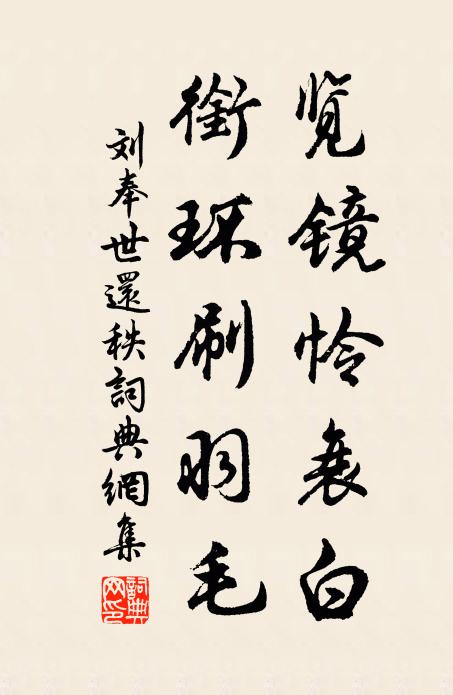 览镜怜衰白
衔环刷羽毛
刘奉世還秩詞典網集
詞典网印